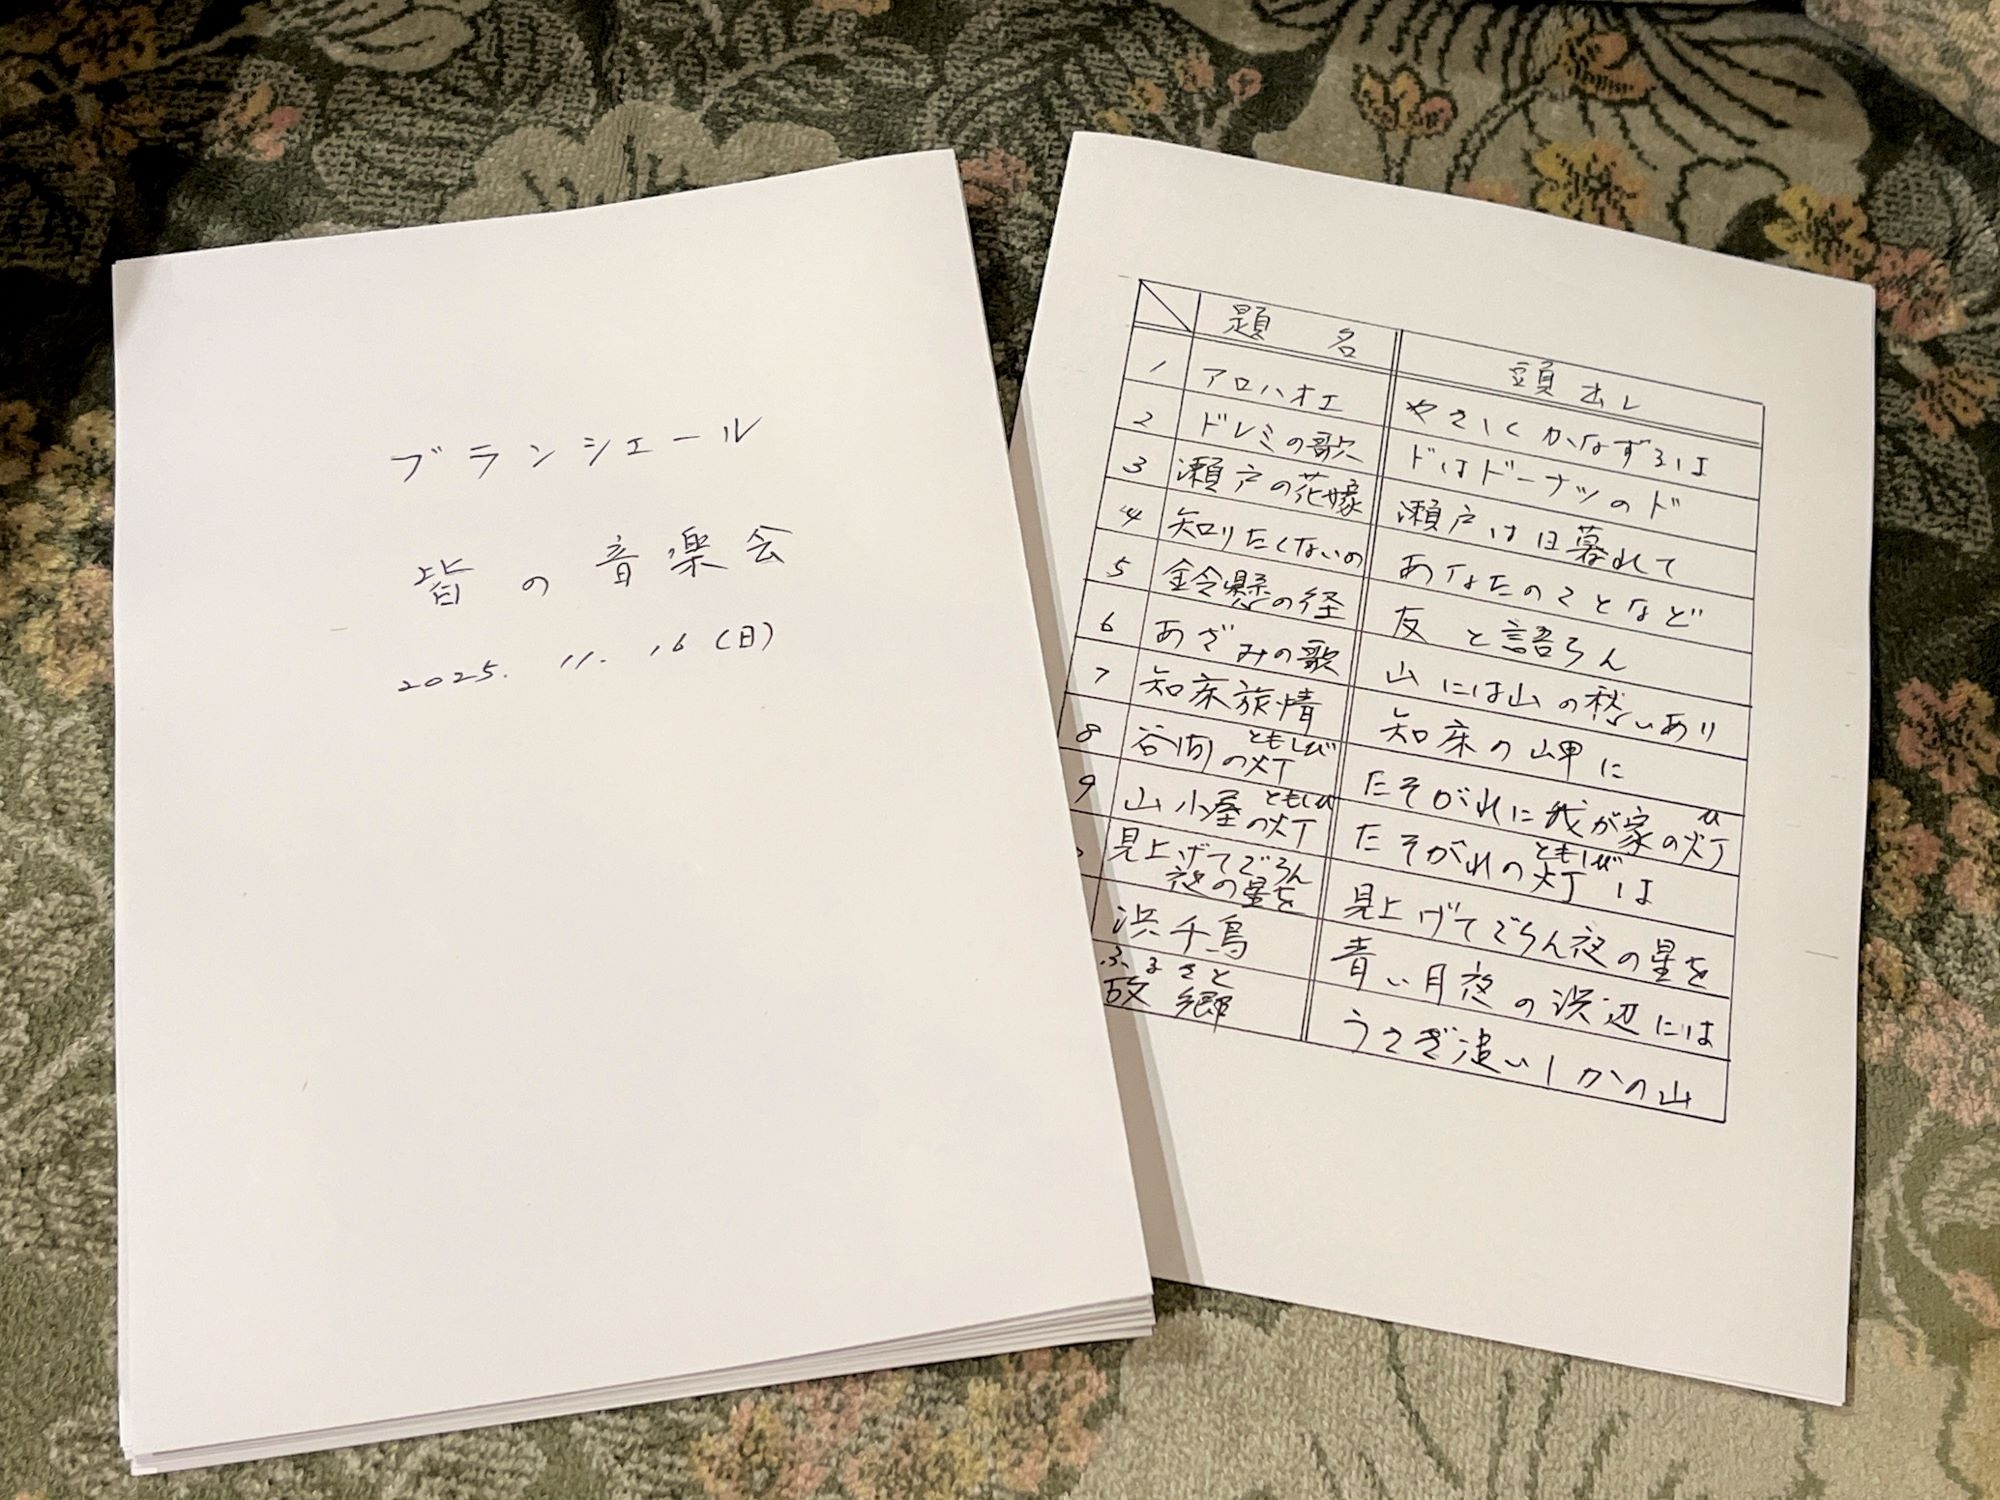 ブランシェール
皆の音楽会
2025. 11. 16 (日)
題名 頭出し
1 アロハオエ やさしくかなずるは
2 ドレミの歌 ドはドーナツのド
3 瀬戸の花嫁 瀬戸は日暮れて
4 知りたくないの あなたのことなど
5 鈴懸の径 友と語らん
6 あざみの歌 山には山の愁いあり
7 知床旅情 知床の岬に
8 谷間の灯 ともしび たそがれに我が家の灯 ひ
9 山小屋の灯 ともしび たそがれの灯は ともしび
見上げてごらん
夜の星を 見上げてごらん夜の星を
浜千鳥 青い月夜の浜辺には
ふるさと
故郷 うさぎ追いしかの山